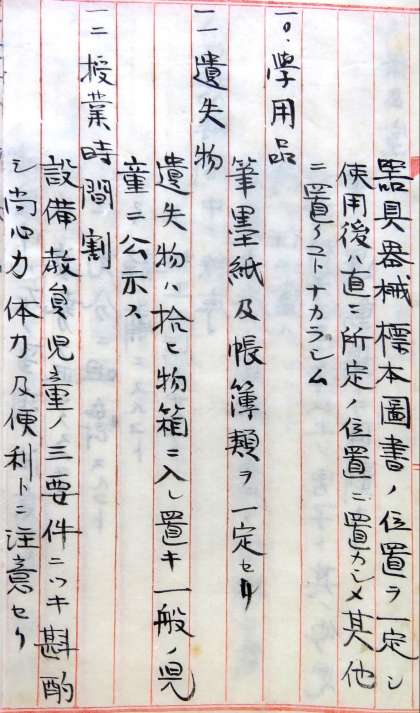 器具器械標本圖書ノ位置ヲ一定シ
使用後ハ直ニ所定ノ位置ニ置カシメ其他
ニ置クコトナカラシム
一〇、學用品
筆墨紙及帳簿類ヲ一定セリ
一一遺失物
遺失物ハ拾ヒ物箱ニ入レ置キ一般ノ児
童ニ公示ス
一二授業時間割
設備教員児童ノ三要件ニツキ斟酌
シ尚心力体力及便利トニ注意セリ